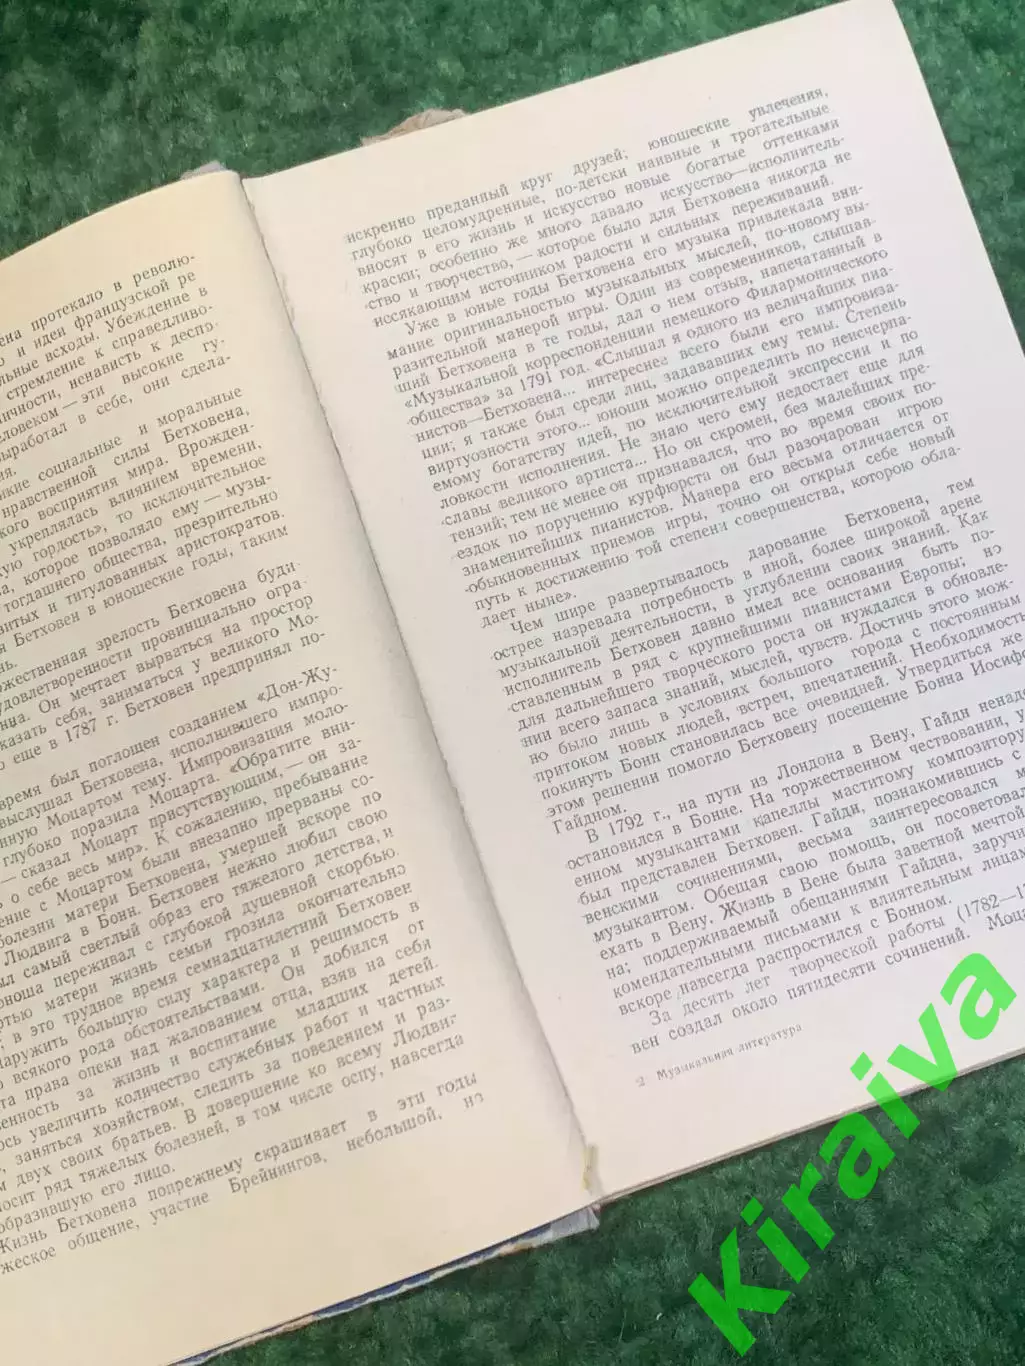 ена протекало в револю-
о и идеи французской ре
льные всходы. Убеждение в
стремление к справедливо-
ичности, ненависть к деспо-
еловеком — эти высокие гу-
ыработал в себе, они сдела-
ия.
икие социальные и моральные
нравственной силы Бетховена,
кого восприятия мира. Врожден-
укреплялась влиянием времени,
ую гордость», то исключительное
а, которое позволяло ему — музы-
тогдашнего общества, презрительно
витых и титулованных аристократов.
я Бетховен в юношеские годы, таким
нь.
ожественная зрелость Бетховена буди
удовлетворенности провинциально огра
нна. Он мечтает вырваться на простор
казать себя, заниматься у великого Мо-
о еще в 1787 г. Бетховен предпринял по-
время был поглощен созданием «Дон-Жу-
выслушал Бетховена, исполнившего импро-
нную Моцартом тему. Импровизация моло-
глубоко поразила Моцарта. «Обратите вни-
— сказал Моцарт присутствующим, — он за-
ь о себе весь мир». К сожалению, пребывание
ение с Моцартом были внезапно прерваны со-
болезни матери Бетховена, умершей вскоре по
Людвига в Бонн. Бетховен нежно любил свою
ыл самый светлый образ его тяжелого детства, и
юноша переживал с глубокой душевной скорбью.
ртью матери жизнь семьи грозила окончательно
; в это трудное время семнадцатилетний Бетховен
наружить большую силу характера и решимость в
о всякого рода обстоятельствами. Он добился от
та права опеки над жалованием отца, взяв на себя
венность за жизнь и воспитание младших детей.
ось увеличить количество служебных работ и частных
, заняться хозяйством, следить за поведением и раз-
м двух своих братьев. В довершение ко всему Людвиг
носит ряд тяжелых болезней, в том числе оспу, навсегда
образившую его лицо.
Жизнь Бетховена попрежнему скрашивает в эти годы
жеское общение, участие Брейнингов, небольшой, но
искренно преданный круг друзей; юношеские увлечения,
глубоко целомудренные, по-детски наивные и трогательные
вносят в его жизнь и искусство новые богатые оттенками
краски; особенно же много давало искусство — исполнитель-
ство и творчество, — которое было для Бетховена никогда не
иссякающим источником радости и сильных переживаний.
Уже в юные годы Бетховена его музыка привлекала вни-
мание оригинальностью музыкальных мыслей, по-новому вы-
разительной манерой игры. Один из современников, слышав-
ший Бетховена в те годы, дал о нем отзыв, напечатанный в
«Музыкальной корреспонденции немецкого Филармонического
общества» за 1791 год. «Слышал я одного из величайших пиа-
нистов — Бетховена... интереснее всего были его импровиза-
ции; я также был среди лиц, задававших ему темы. Степень
виртуозности этого... юноши можно определить по неисчерпа-
емому богатству идей, по исключительной экспрессии и по
ловкости исполнения. Не знаю чего ему недостает еще для
славы великого артиста... Но он скромен, без малейших пре-
тензий; тем не менее он признавался, что во время своих по-
ездок по поручению курфюрста он был разочарован игрою
знаменитейших пианистов. Манера его весьма отличается от
обыкновенных приемов игры, точно он открыл себе новый
путь к достижению той степени совершенства, которою обла-
дает ныне».
Чем шире развертывалось дарование Бетховена, тем
острее назревала потребность в иной, более широкой арене
музыкальной деятельности, в углублении своих знаний. Как
исполнитель Бетховен давно имел все основания быть по-
ставленным в ряд с крупнейшими пианистами Европы; но
для дальнейшего творческого роста он нуждался в обновле-
нии всего запаса знаний, мыслей, чувств. Достичь этого мож-
но было лишь в условиях большого города с постоянным
притоком новых людей, встреч, впечатлений. Необходимость
покинуть Бонн становилась все очевидней. Утвердиться же
этом решении помогло Бетховену посещение Бонна Иосифо
Гайдном.
В 1792 г., на пути из Лондона в Вену, Гайдн ненадо
остановился в Бонне. На торжественном чествовании, у
енном музыкантами капеллы маститому композитору
был представлен Бетховен. Гайдн, познакомившись с
венскими сочинениями, весьма заинтересовался м
музыкантом. Обещая свою помощь, он посоветовал
ехать в Вену. Жизнь в Вене была заветной мечтой
на; поддерживаемый обещаниями Гайдна, заручи
комендательными письмами к влиятельным лицам
вскоре навсегда распростился с Бонном.
За десять лет творческой работы (1782—1
вен создал около пятидесяти сочинений. Моц
2 Музыкальная литература
Kiraiva